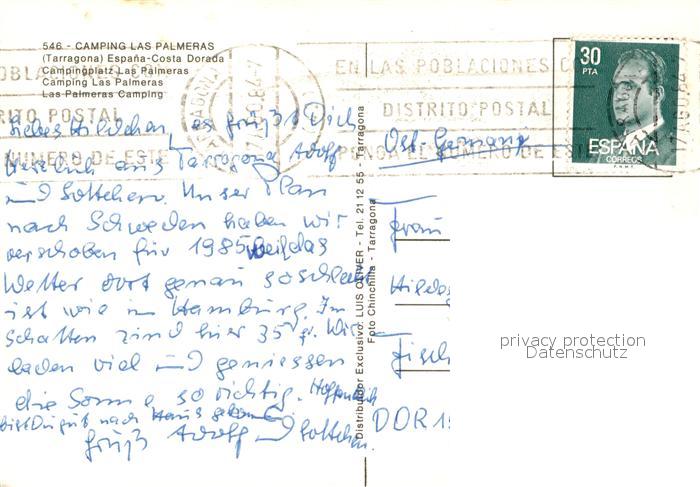 546 - CAMPING LAS PALMERAS
(Tarragona) España-Costa Dorada
Campingplatz Las Palmeras
Camping Las Palmeras
Las Palmeras Camping
EN LAS POBLACIONES C
DISTRITO POSTAL
PONGA EL NUMERO DE ESTE
30
PTA
ESPAÑA
CORREOS
Liebes Hildchen, es grüßt Dich
herzlich aus Tarragona Adolf
und Lottchen. Unser Plan
nach Schweden haben wir
verschoben für 1985 weil das
Wetter dort genau so schlecht
ist wie in Hamburg. Im
Schatten sind hier 35 gr. Wir
baden viel und geniessen
die Sonne so richtig. Hoffentlich
bist Du gut nach Haus gekommen
Gruß Adolf und Lottchen.
Distribuidor Exclusivo: LUIS OLIVER - Tel. 21 12 55 - Tarragona
Foto Chinchilla - Tarragona
Ost-Germany
Frau
Hildeg
Fisch
DDR 15
privacy protection
Datenschutz